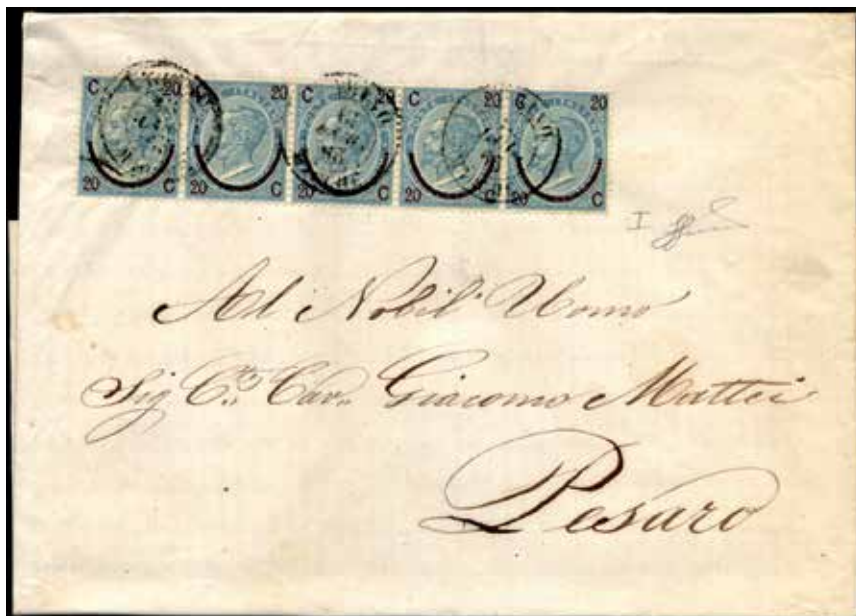 C 20 C 20 C 20 C 20 C 20
20 C 20 C 20 C 20 C 20 C
I
Al Nobil' Uomo
Sig C.te Cav.e Giacomo Mattei
Pesaro